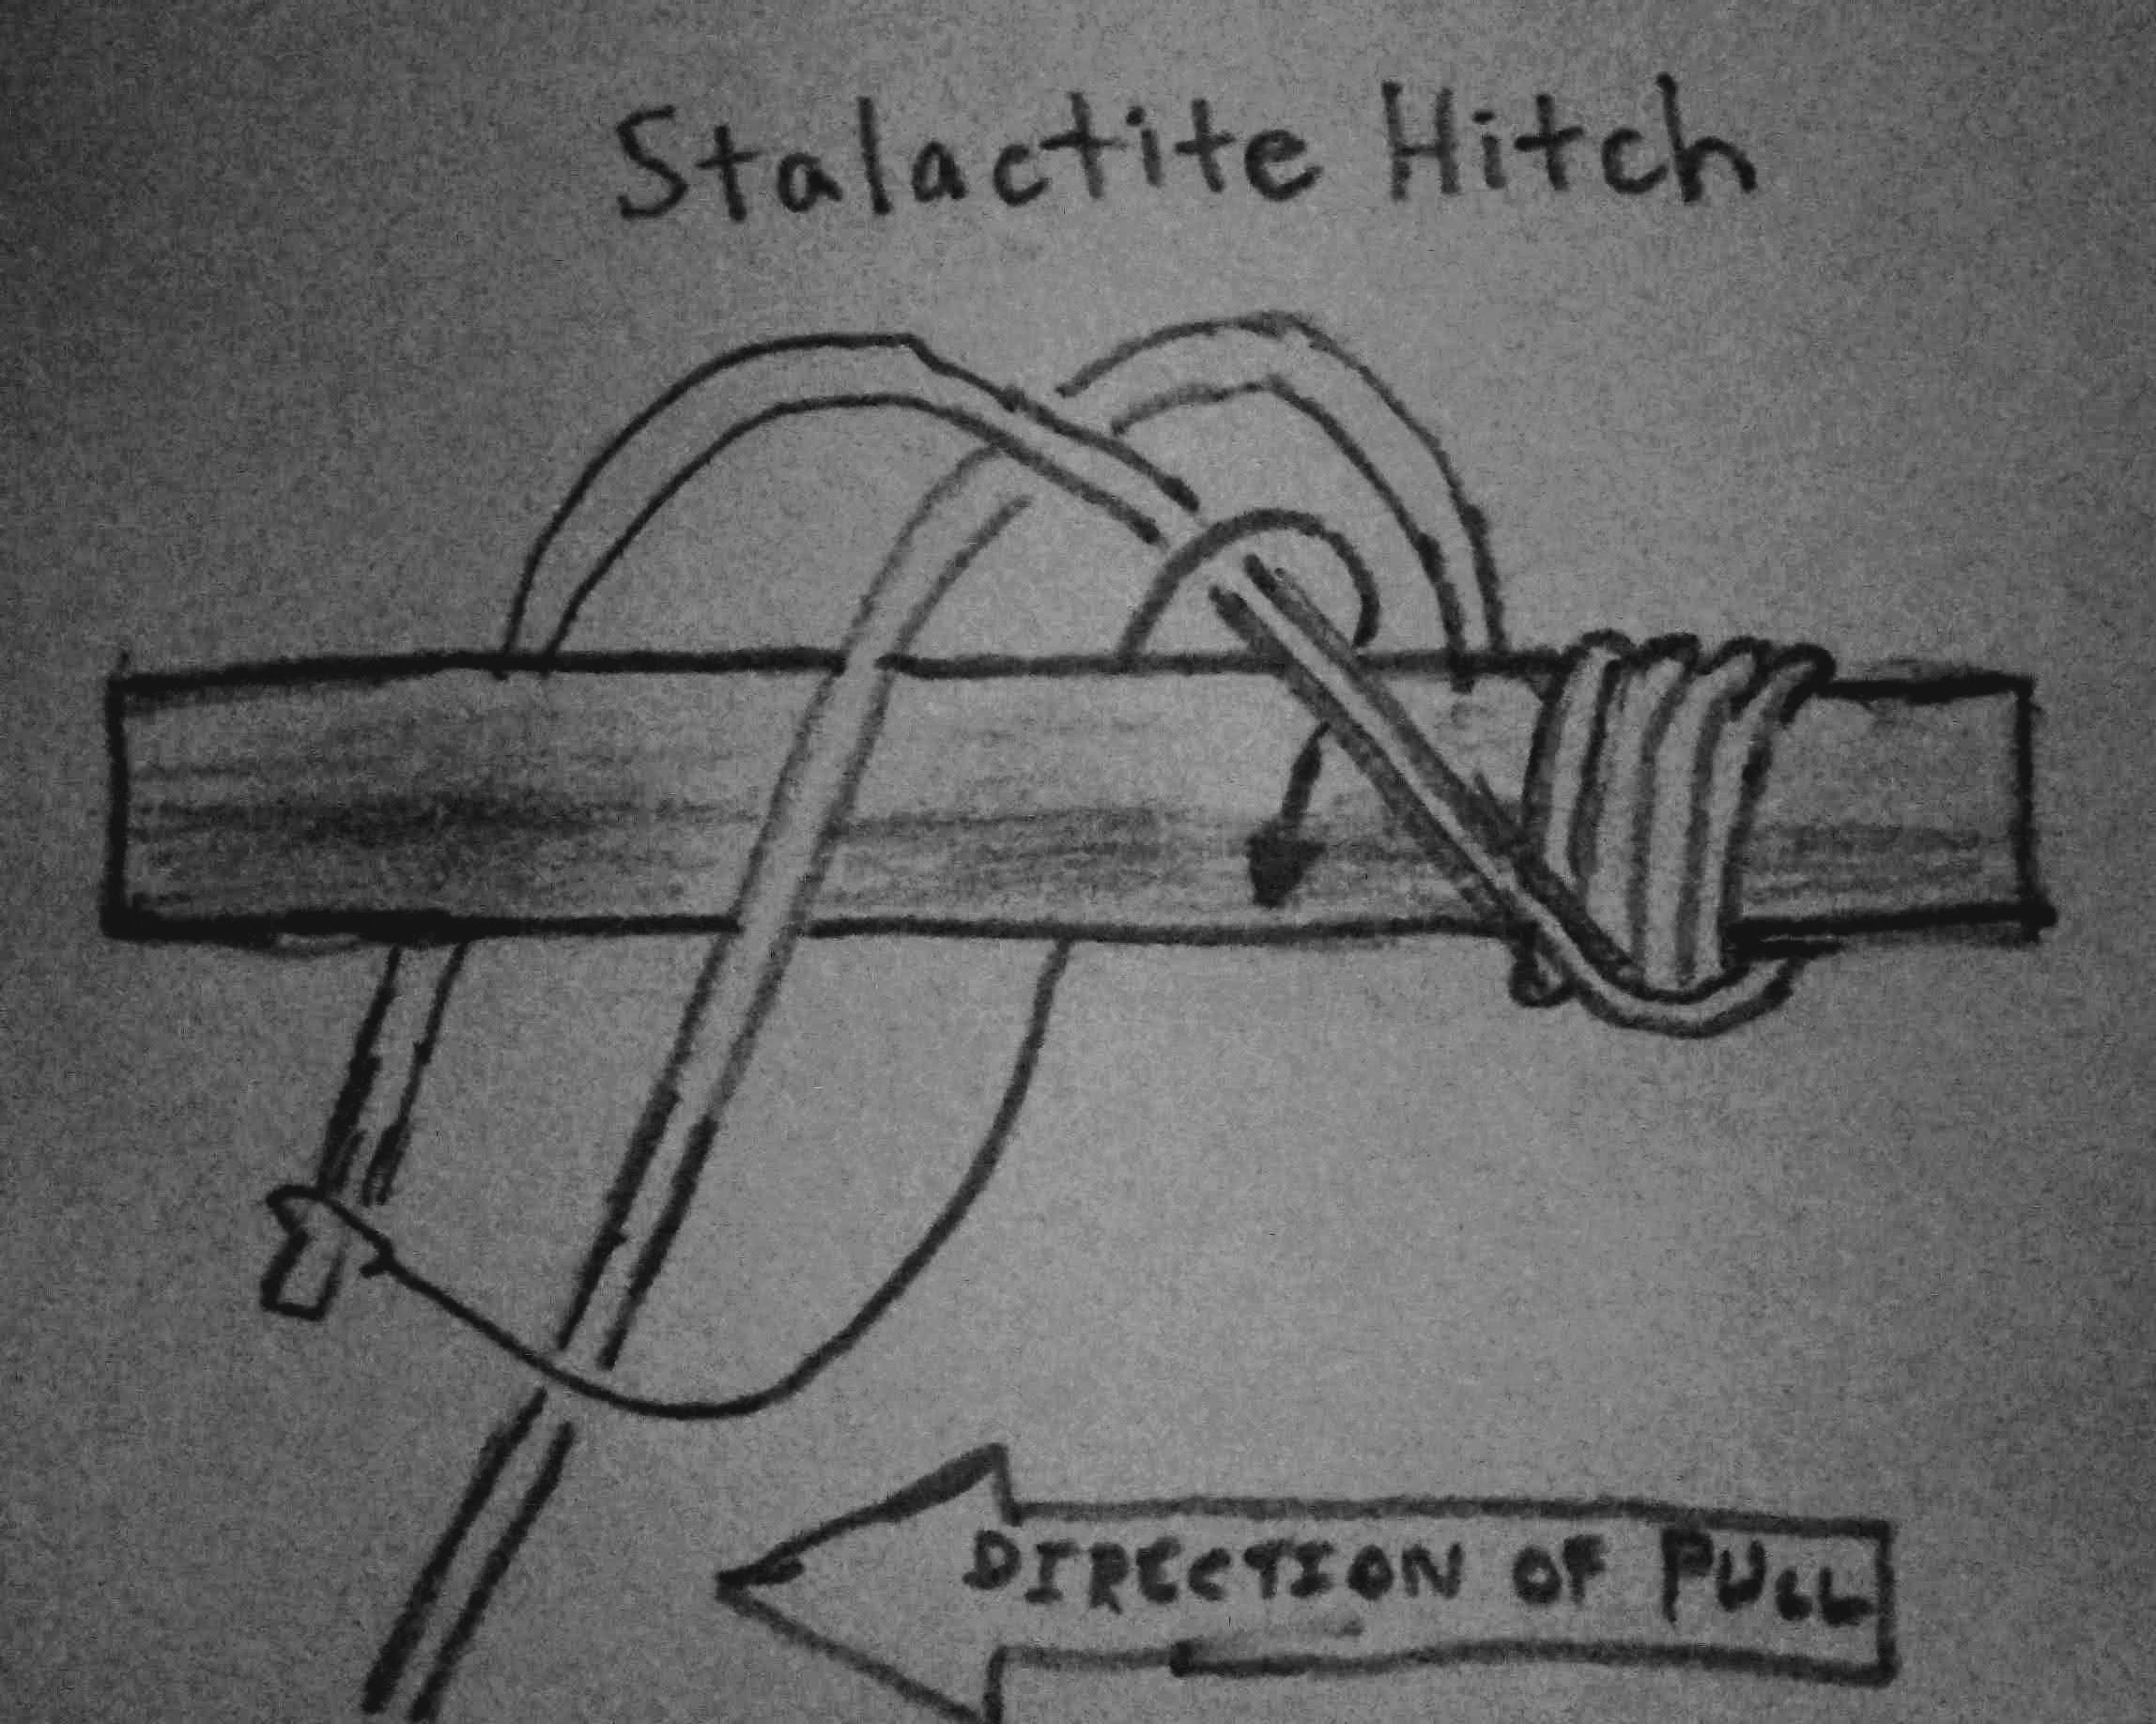 Stalactite Hitch
DIRECTION OF PULL